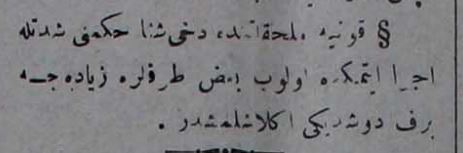 § قونیه ملحقاتنده دخی شتا حكمنی شدتله
اجرا ایتمكده اولوب بعض طرفلره زیاده جـه
برف دوشدیكی اكلاشلمشدر .